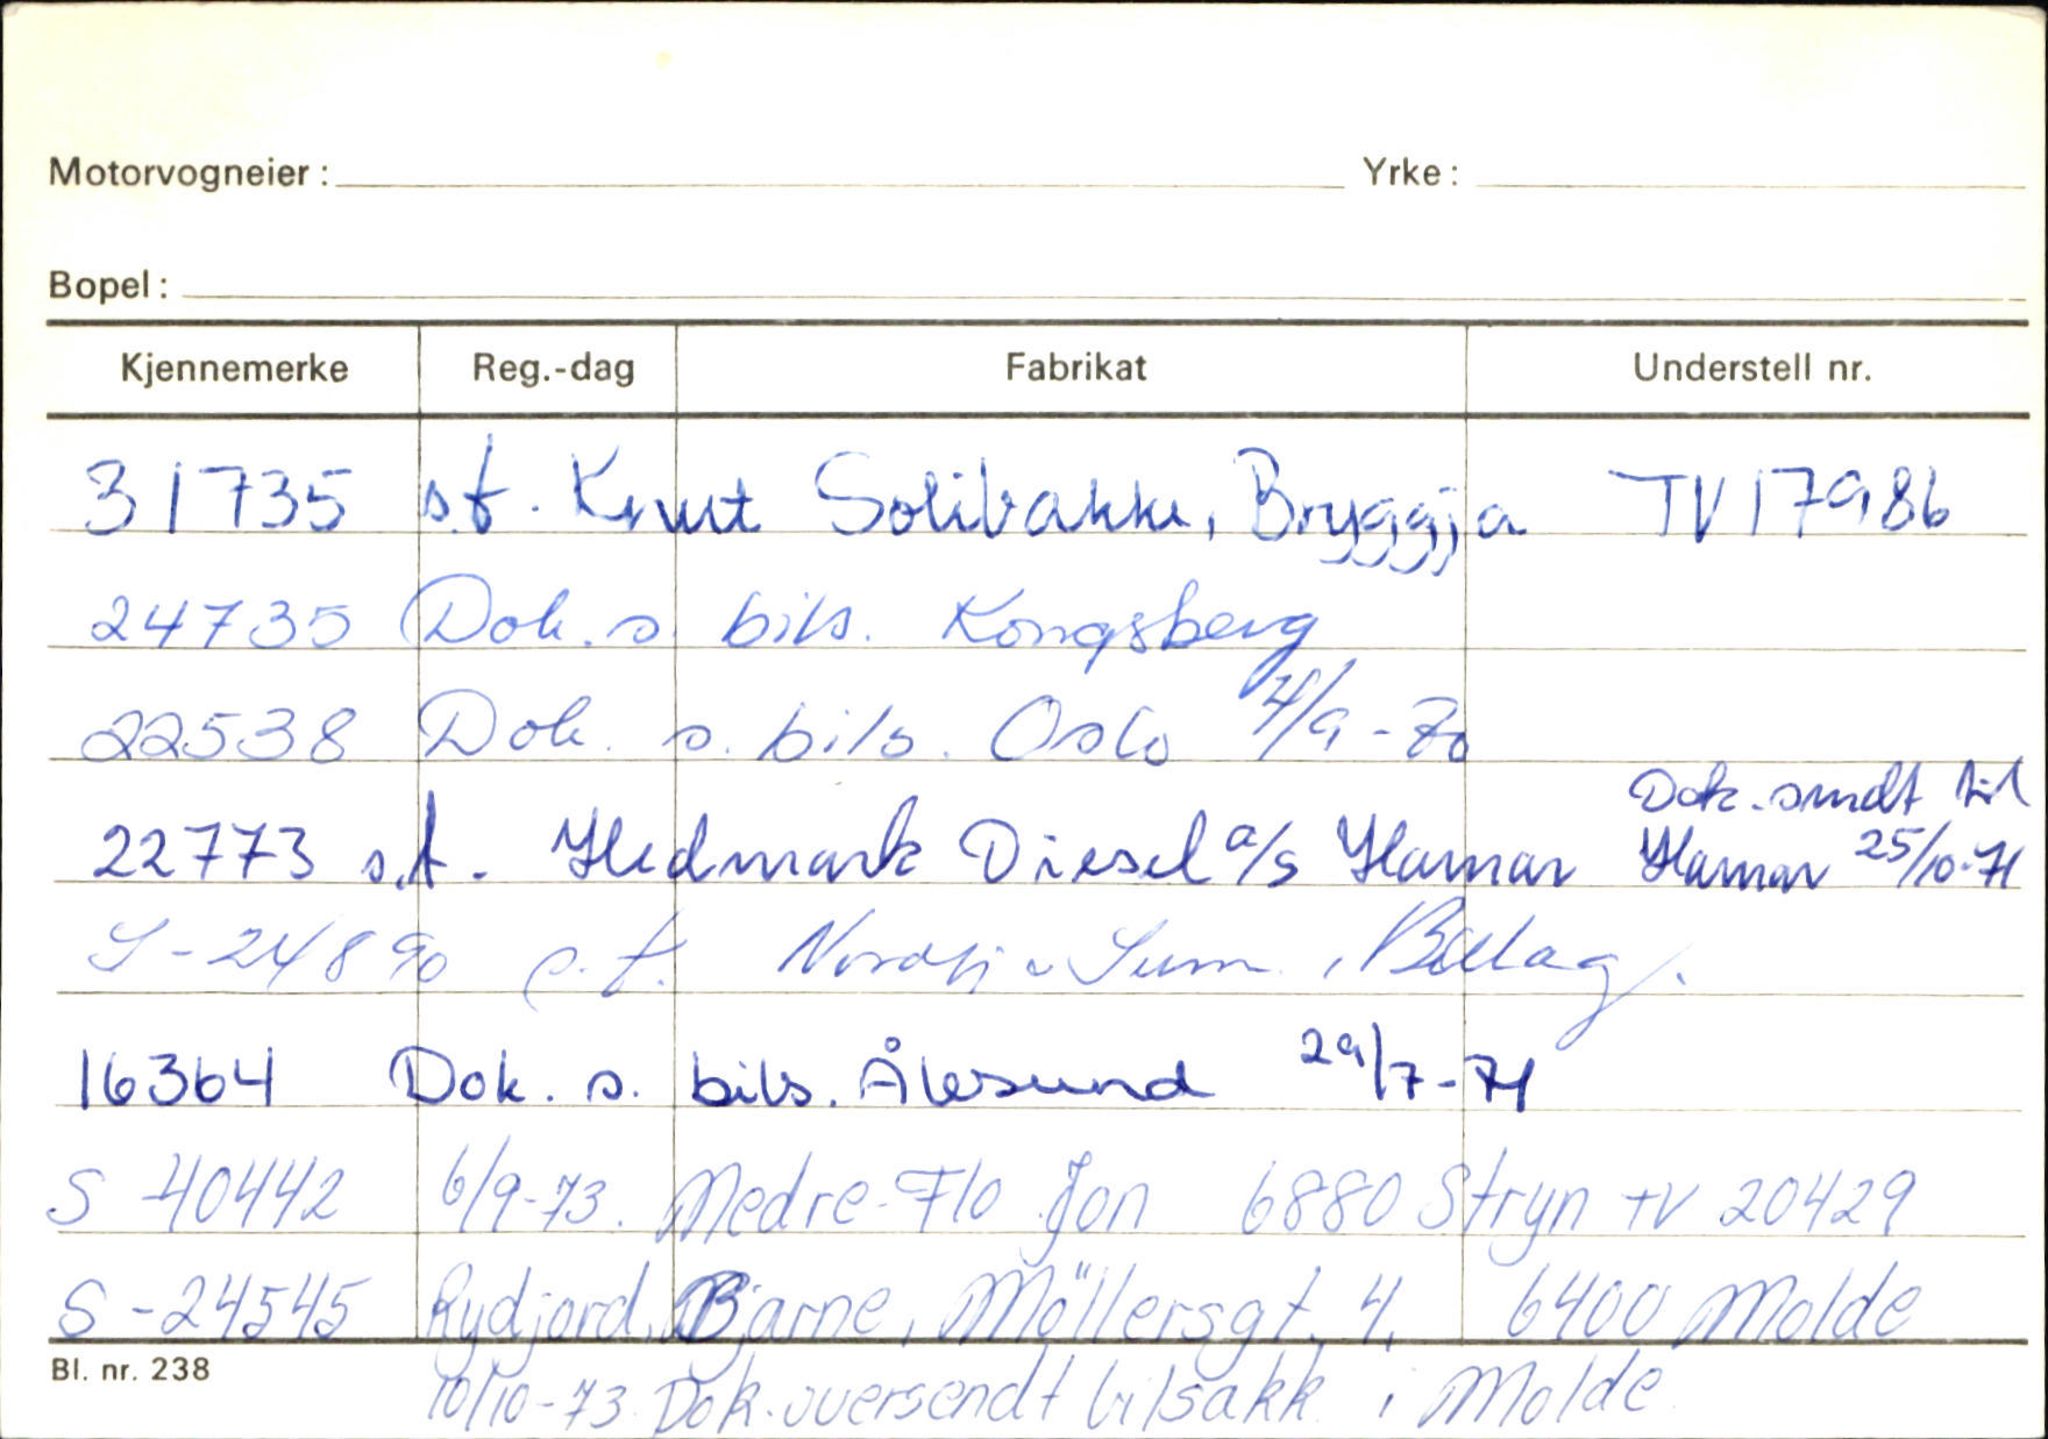 Motorvogneier: Yrke:
Bopel:
Kjennemerke Reg.-dag Fabrikat Understell nr.
31735 s.t. Knut Solibakke, Bryggja TV17986
24735 Dok. s. bils. Kongsberg
22538 Dok. s. bils. Oslo 4/9-70
Dok. sendt til
22773 s.t. Hedmark Diesel a/s Hamar Hamar 25/10-71
S-24890 s.t. Billag.
16364 Dok. s. bils. Ålesund 29/7-71
S-40442 6/9-73. Nedre-Flo Jon 6880 Stryn TV 20429
S-24545 Rydjord, Bjarne, Möllersgt. 4, 6400 Molde
Bl. nr. 238
10/10-73. Dok. oversendt bilsakk i Molde